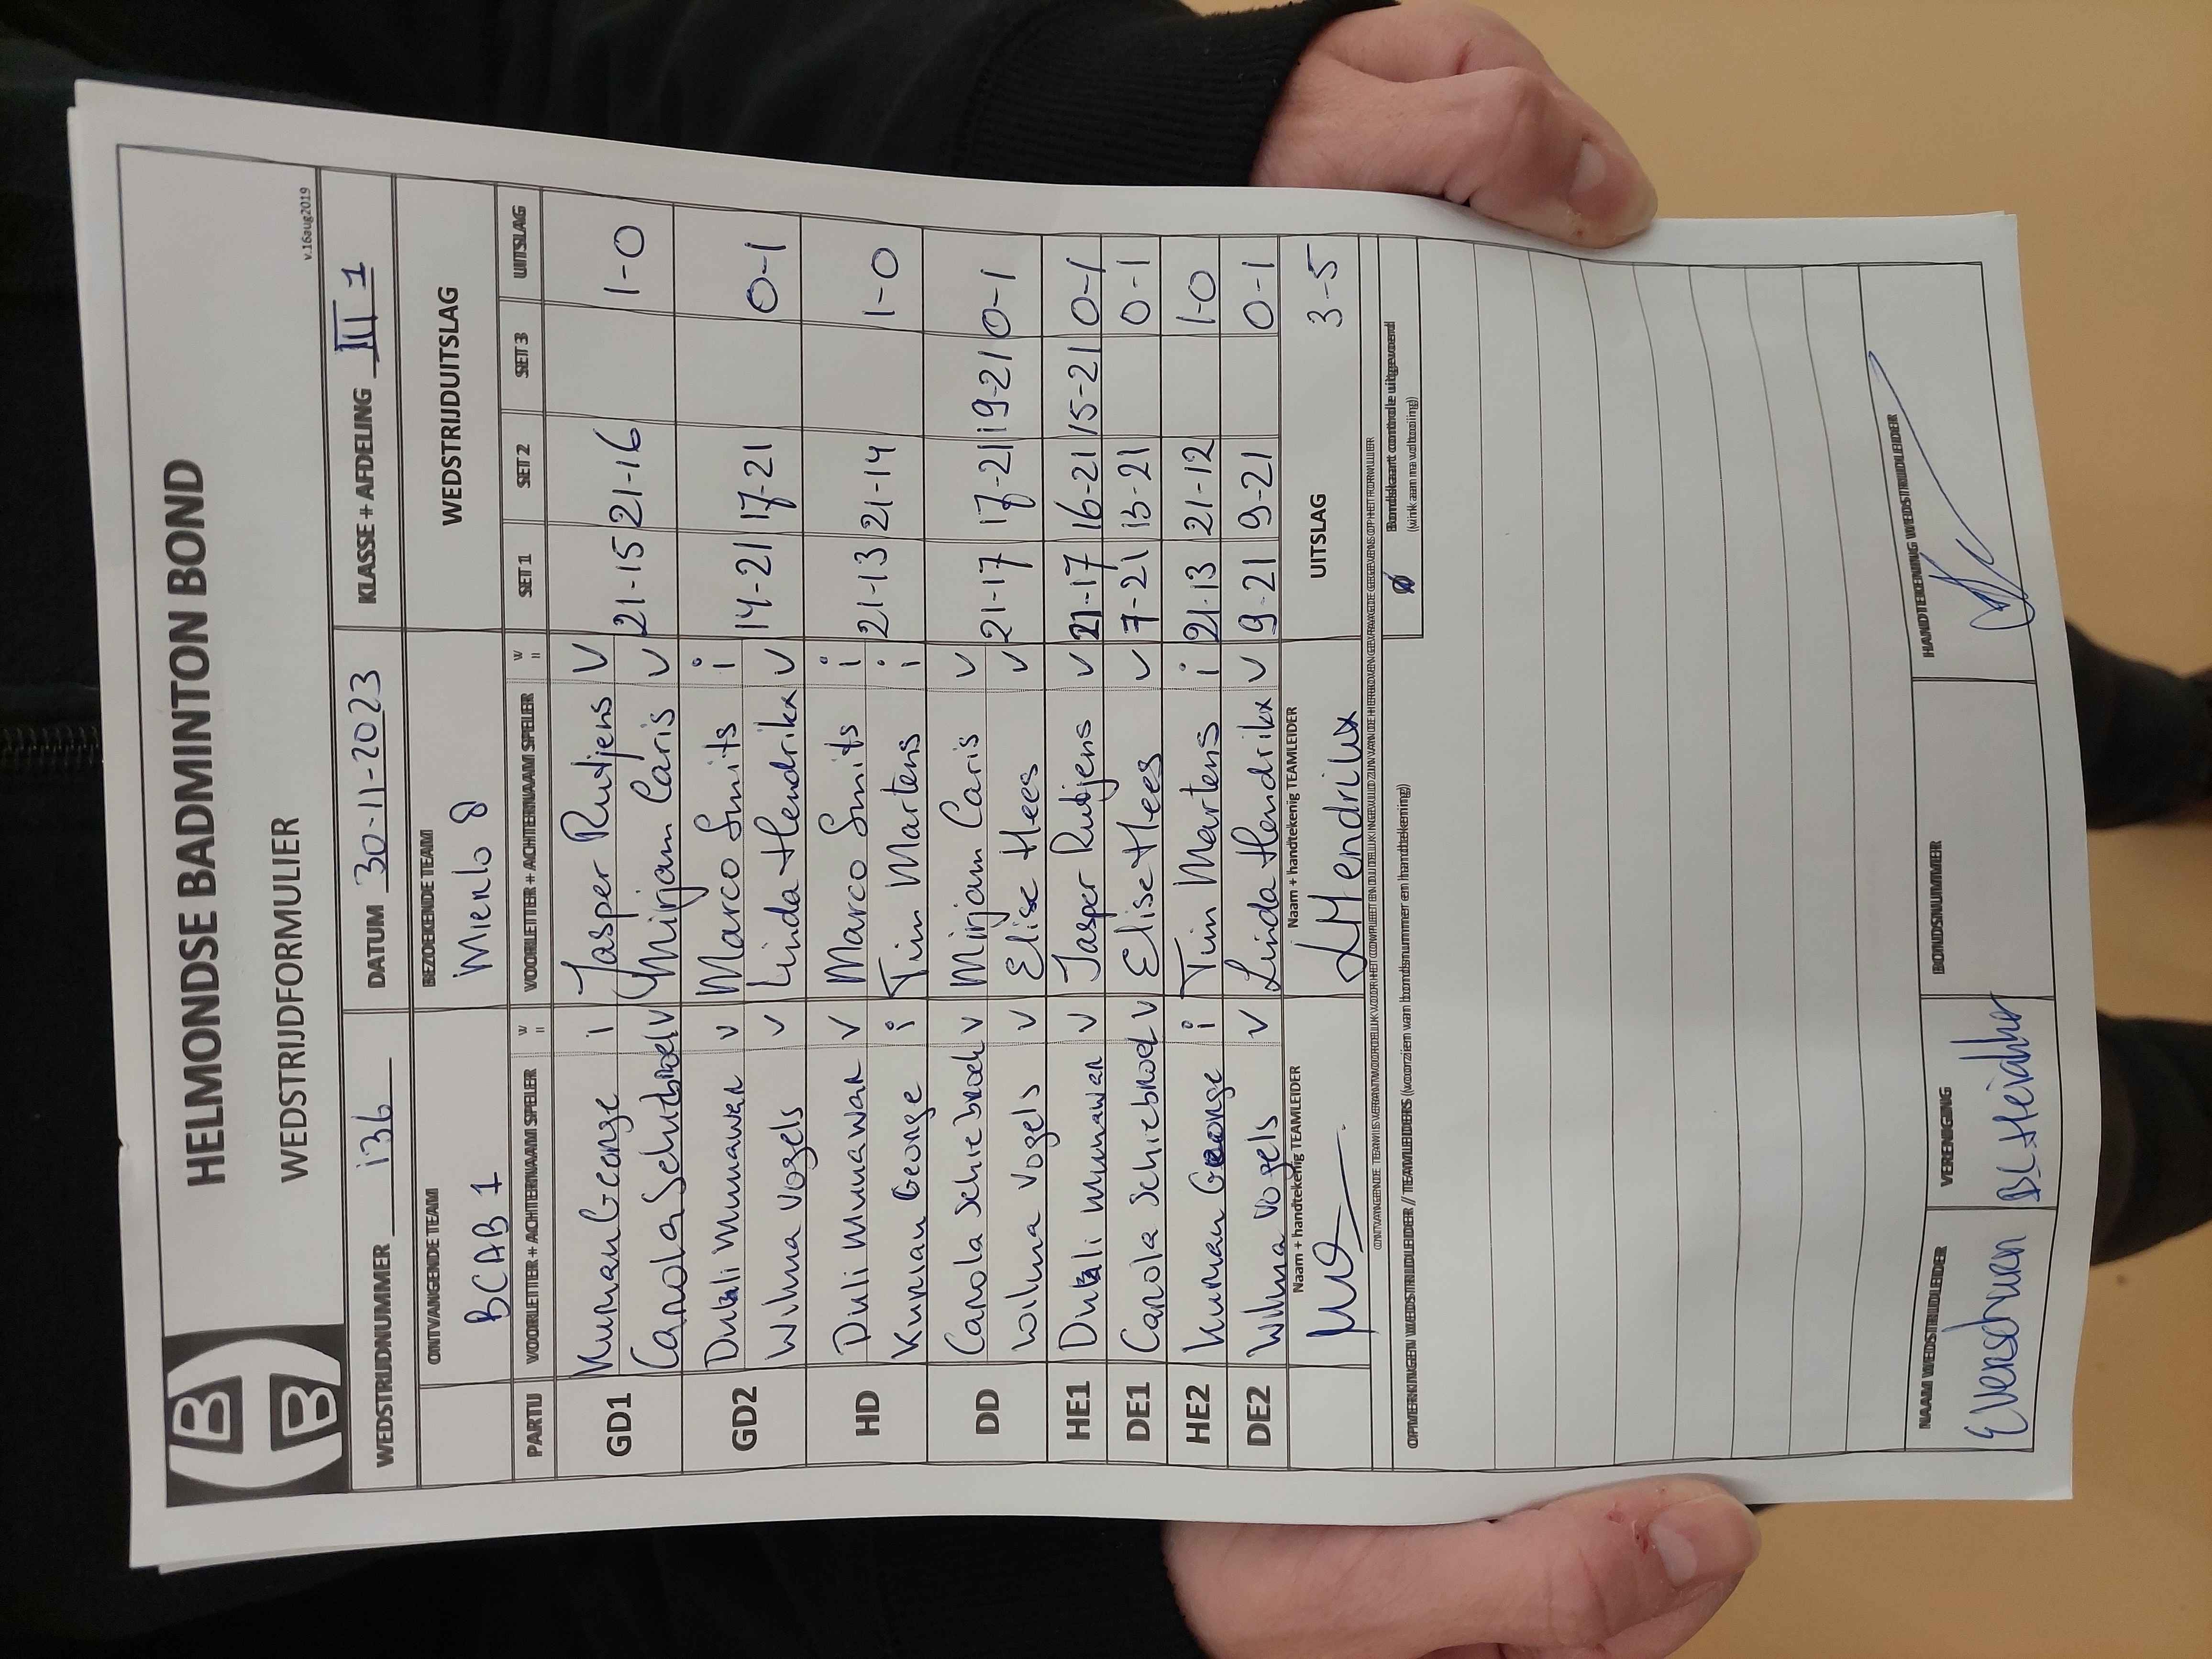 HELMONDSE BADMINTON BOND
WEDSTRIJDFORMULIER
v.16aug2019
WEDSTRIJDNUMMER 136 DATUM 30-11-2023 KLASSE + AFDELING III 1
ONTVANGENDE TEAM BEZOEKENDE TEAM WEDSTRIJDUITSLAG
BCAB 1 Mierlo 8
PARTIJ VOORLETTER + ACHTERNAAM SPELER W VOORLETTER + ACHTERNAAM SPELER W SET 1 SET 2 SET 3 UITSLAG
GD1 Kurian George i Jasper Rutjens V 21-15 21-16 1-0
Carola Schiebroek V Mirjam Caris V
GD2 Duli Munawar V Marco Smits i 14-21 17-21 0-1
Wilma Vogels V Linda Hendrikx V
HD Duli Munawar V Marco Smits i 21-13 21-14 1-0
Kurian George i Tim Martens i
DD Carola Schiebroek V Mirjam Caris V 21-17 17-21 19-21 0-1
Wilma Vogels V Elise Hees V
HE1 Duli Munawar V Jasper Rutjens V 21-17 16-21 15-21 0-1
DE1 Carola Schiebroek V Elise Hees V 7-21 13-21 0-1
HE2 Kurian George i Tim Martens i 21-13 21-12 1-0
DE2 Wilma Vogels V Linda Hendrikx V 9-21 9-21 0-1
Naam + handtekenig TEAMLEIDER Naam + handtekenig TEAMLEIDER UITSLAG 3-5
LHendrikx
Bondskaart controle uitgevoerd
OPMERKINGEN WEDSTRIJDLEIDER // TEAMLEIDERS (voorzien van bondsnummer en handtekening)
NAAM WEDSTRIJDLEIDER VERENIGING BONDSNUMMER HANDTEKENING WEDSTRIJDLEIDER